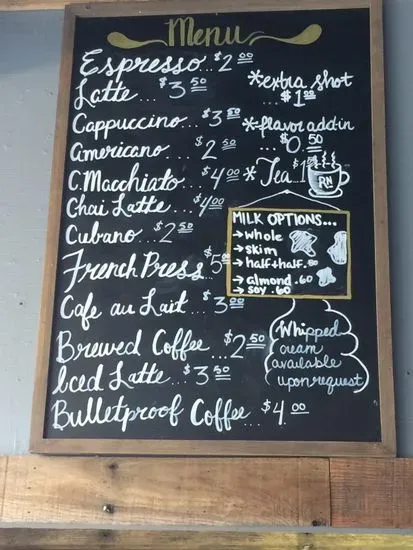 Menu
Espresso...$2.00
Latte...$3.50
Cappuccino...$3.50
Americano...$2.50
C.Macchiato...$4.00
Chai Latte...$4.00
Cubano...$2.50
French Press...$5
Cafe au Lait...$3.00
Brewed Coffee...$2.50
Iced Latte...$3.50
Bulletproof Coffee...$4.00
*extra shot
...$1.00
*flavor add in
...$0.50
*Tea $1
RN
MILK OPTIONS...
→whole
→skim
→half+half .50
→almond .60
→soy .60
Whipped
cream
available
upon request